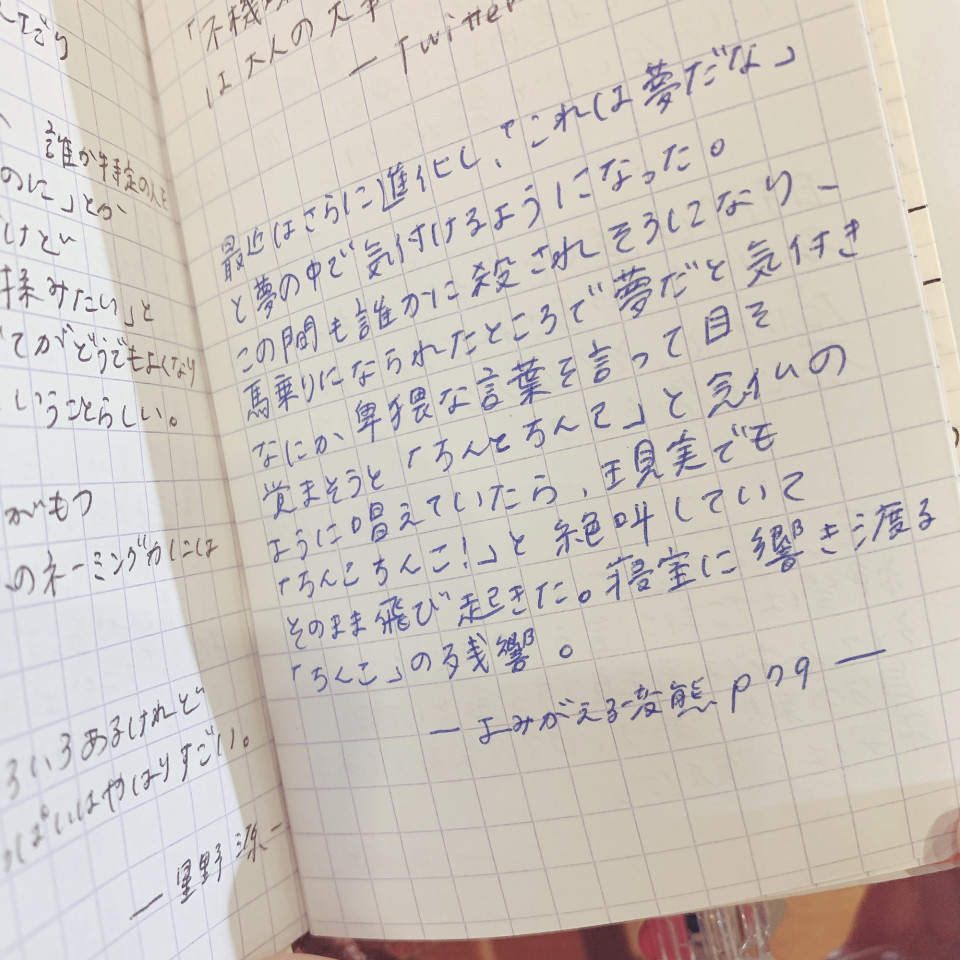 んだり
誰か特定の人を
のに」とか
けど
揉みたい」と
てがどうでもよくなり
いうことらしい。
がもつ
のネーミングカには
ろいろあるけれど
ぱいはやはりすごい。
― 星野源 ―
「不機嫌
は大人の大事
― Twitter
最近はさらに進化し、「これは夢だな」
と夢の中で気付けるようになった。
この間も誰かに殺されそうになり、
馬乗りになられたところで夢だと気付き
なにか卑猥な言葉を言って目を
覚まそうと「ちんこちんこ」と念仏の
ように唱えていたら、現実でも
「ちんこちんこ!」と絶叫していて
そのまま飛び起きた。寝室に響き渡る
「ちんこ」の残響。
― よみがえる変態 P79 ―